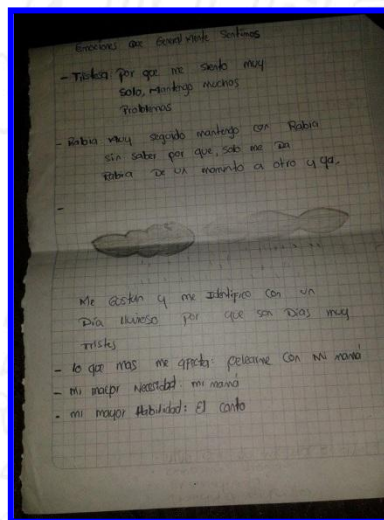 Emociones que Generalmente Sentimos
- Tristeza: Por que me siento muy
solo, Mantengo muchos
Problemas
- Rabia Muy seguido mantengo con Rabia
sin saber por que, solo me Da
Rabia De un momento a otro y ya.
-
Me Gustan y me Identifico con un
Día lluvioso por que son Días muy
tristes
- lo que mas me afecta: pelearme con mi mamá
- mi mayor Necesidad: mi mamá
- mi mayor Habilidad: El canto